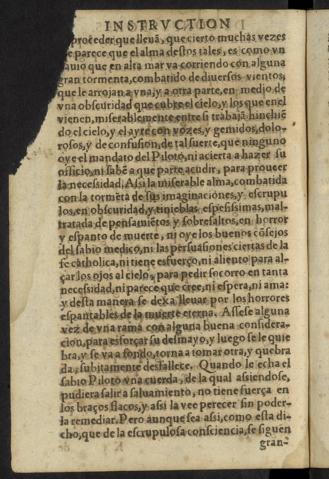 INSTRVCTION
proceder que lleuã, que cierto muchas vezes
parece que el alma destos tales, es como vn
nauio que en alta mar va corriendo con alguna
gran tormenta, combatido de diuersos vientos,
que le arrojan a vna, y a otra parte, en medio de
vna obscuridad que cubre el cielo, y los que en el
vienen, miserablemente entre si trabajã hinchiẽ
do el cielo, y el ayre con vozes, y gemidos, dolo-
rosos, y de confusion, de tal suerte, que ninguno
oye el mandato del Piloto, ni acierta a hazer su
officio, ni sabẽ a que parte acudir, para proueer
la necessidad. Assi la miserable alma, combatida
con la tormẽta de sus imaginaciones, y escrupu
los, en obscuridad, y tinieblas espessissimas, mal-
tratada de pensamiẽtos y sobresaltos, en horror
y espanto de muerte, ni oye los buenos cõsejos
del sabio medico, ni las persuasiones ciertas de la
fe catholica, ni tiene esfuerço, ni aliento para al-
çar los ojos al cielo, para pedir socorro en tanta
necessidad, ni parece que cree, ni espera, ni ama:
y desta manera se dexa lleuar por los horrores
espantables de la muerte eterna. Assese alguna
vez de vna rama con alguna buena considera-
cion, para esforçar su desmayo, y luego se le quie
bra, y se va a fondo, torna a tomar otra, y quebra
da, subitamente desfallece. Quando le echa el
sabio Piloto vna cuerda, de la qual asiendose,
pudiera salir a saluamiento, no tiene fuerça en
los braços flacos, y assi la vee perecer sin poder-
la remediar. Pero aunque sea assi, como esta di-
cho, que de la escrupulosa consciencia, se siguen
gran-